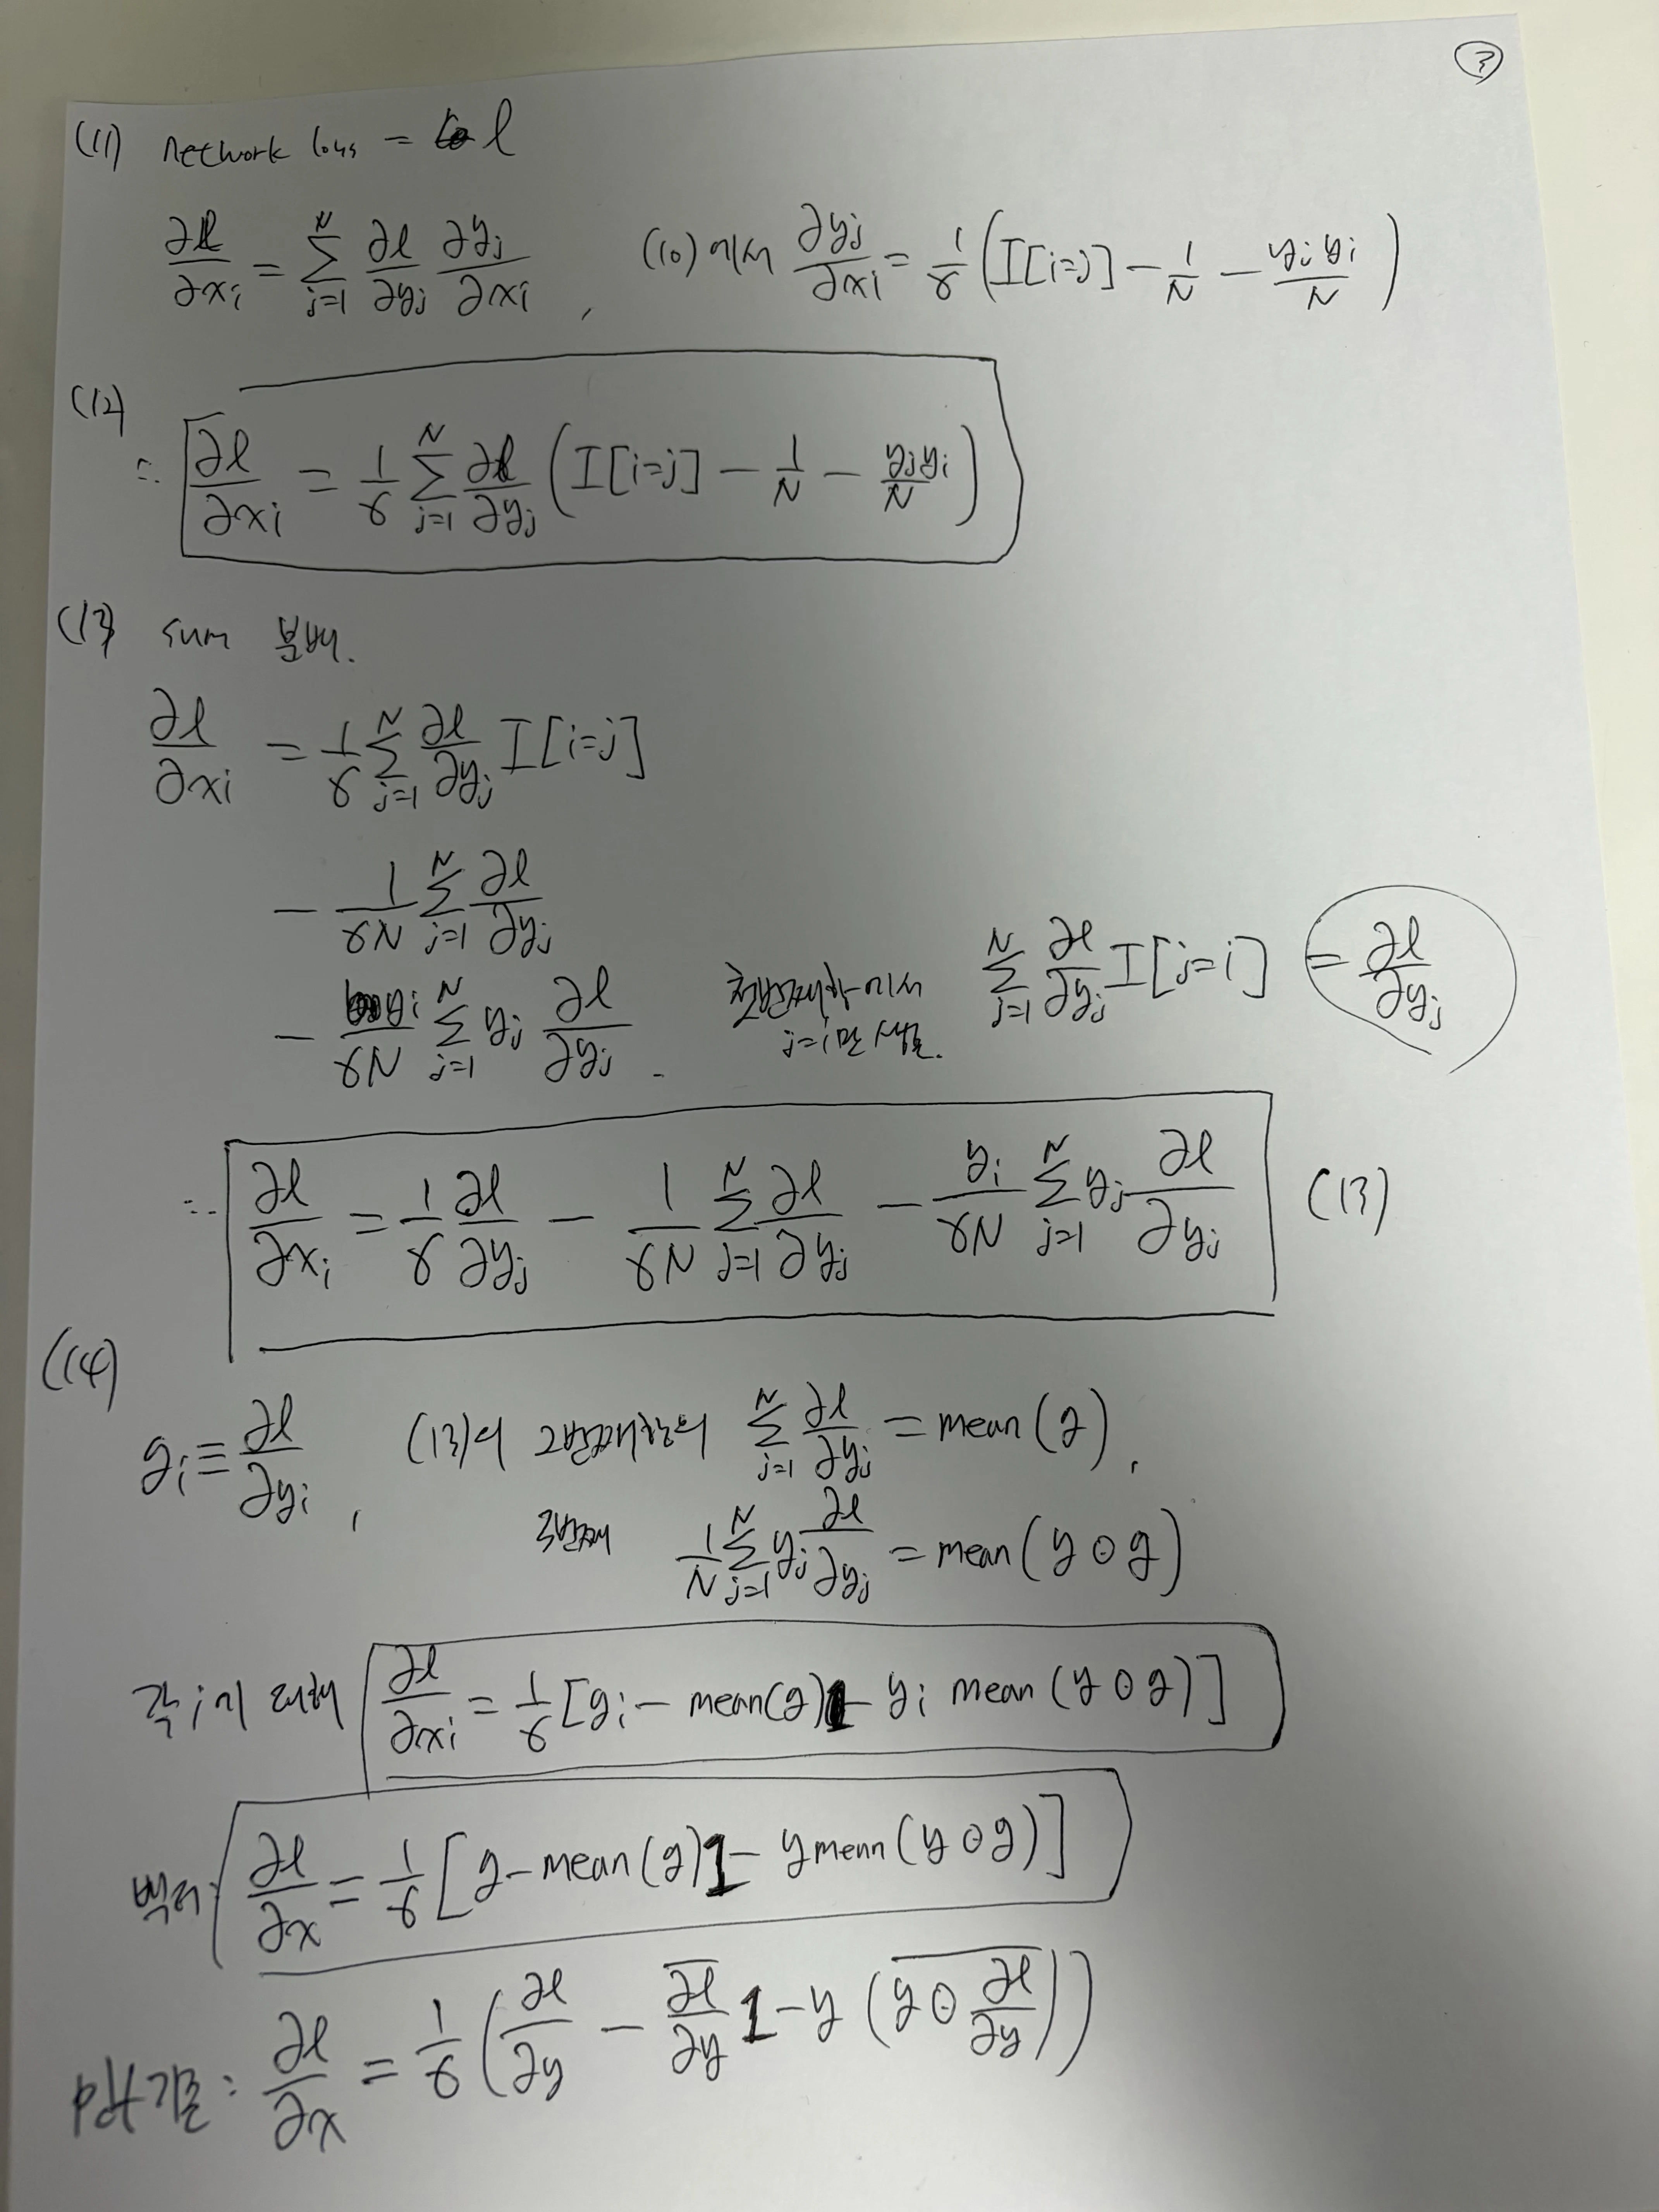 ③
(11) network loss = l
∂l/∂xᵢ = Σ_{j=1}^{N} ∂l/∂yⱼ ∂yⱼ/∂xᵢ , (10)에서 ∂yⱼ/∂xᵢ = 1/γ (I[i=j] − 1/N − yⱼyᵢ/N)
(12)
∴ ∂l/∂xᵢ = 1/γ Σ_{j=1}^{N} ∂l/∂yⱼ (I[i=j] − 1/N − yⱼyᵢ/N)
(13) sum 분배.
∂l/∂xᵢ = 1/γ Σ_{j=1}^{N} ∂l/∂yⱼ I[i=j]
− 1/γN Σ_{j=1}^{N} ∂l/∂yⱼ
− yᵢ/γN Σ_{j=1}^{N} yⱼ ∂l/∂yⱼ .
첫번째항에서 Σ_{j=1}^{N} ∂l/∂yⱼ I[j=i] = ∂l/∂yⱼ
j=i만
∴ ∂l/∂xᵢ = 1/γ ∂l/∂yⱼ − 1/γN Σ_{j=1}^{N} ∂l/∂yⱼ − yᵢ/γN Σ_{j=1}^{N} yⱼ ∂l/∂yⱼ (13)
(14)
gᵢ ≡ ∂l/∂yᵢ , (13)의 2번째항의 Σ_{j=1}^{N} ∂l/∂yⱼ = mean(g),
3번째 1/N Σ_{j=1}^{N} yⱼ ∂l/∂yⱼ = mean(y⊙g)
각 i에 대해 ∂l/∂xᵢ = 1/γ [gᵢ − mean(g) − yᵢ mean(y⊙g)]
벡터: ∂l/∂x = 1/γ [g − mean(g)1 − y mean(y⊙g)]
pdf기준: ∂l/∂x = 1/γ (∂l/∂y − \overline{∂l/∂y} 1 − y (\overline{y⊙∂l/∂y}))